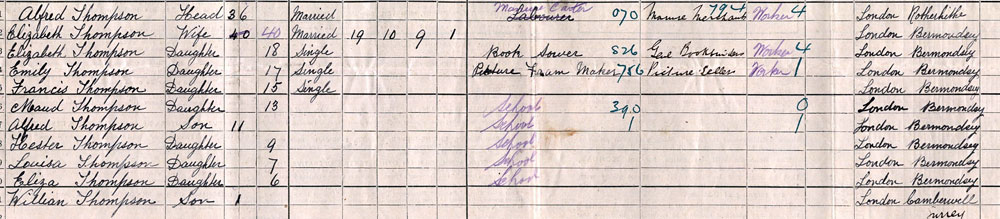 Alfred Thompson Head 36 Married Manure Carter Labourer 070 Manure Merchant 794 Worker 4 London Rotherhithe
Elizabeth Thompson Wife 40 40 Married 19 10 9 1 London Bermondsey
Elizabeth Thompson Daughter 18 Single Book Sewer 526 Worker 4 London Bermondsey
Emily Thompson Daughter 17 Single Picture Fram Maker 786 Picture Seller Worker 1 London Bermondsey
Francis Thompson Daughter 15 Single London Bermondsey
Maud Thompson Daughter 13 School 390 0 London Bermondsey
Alfred Thompson Son 11 School 1 1 London Bermondsey
Hester Thompson Daughter 9 School London Bermondsey
Louisa Thompson Daughter 7 School London Bermondsey
Eliza Thompson Daughter 6 School London Bermondsey
Willian Thompson Son 1 London Camberwell